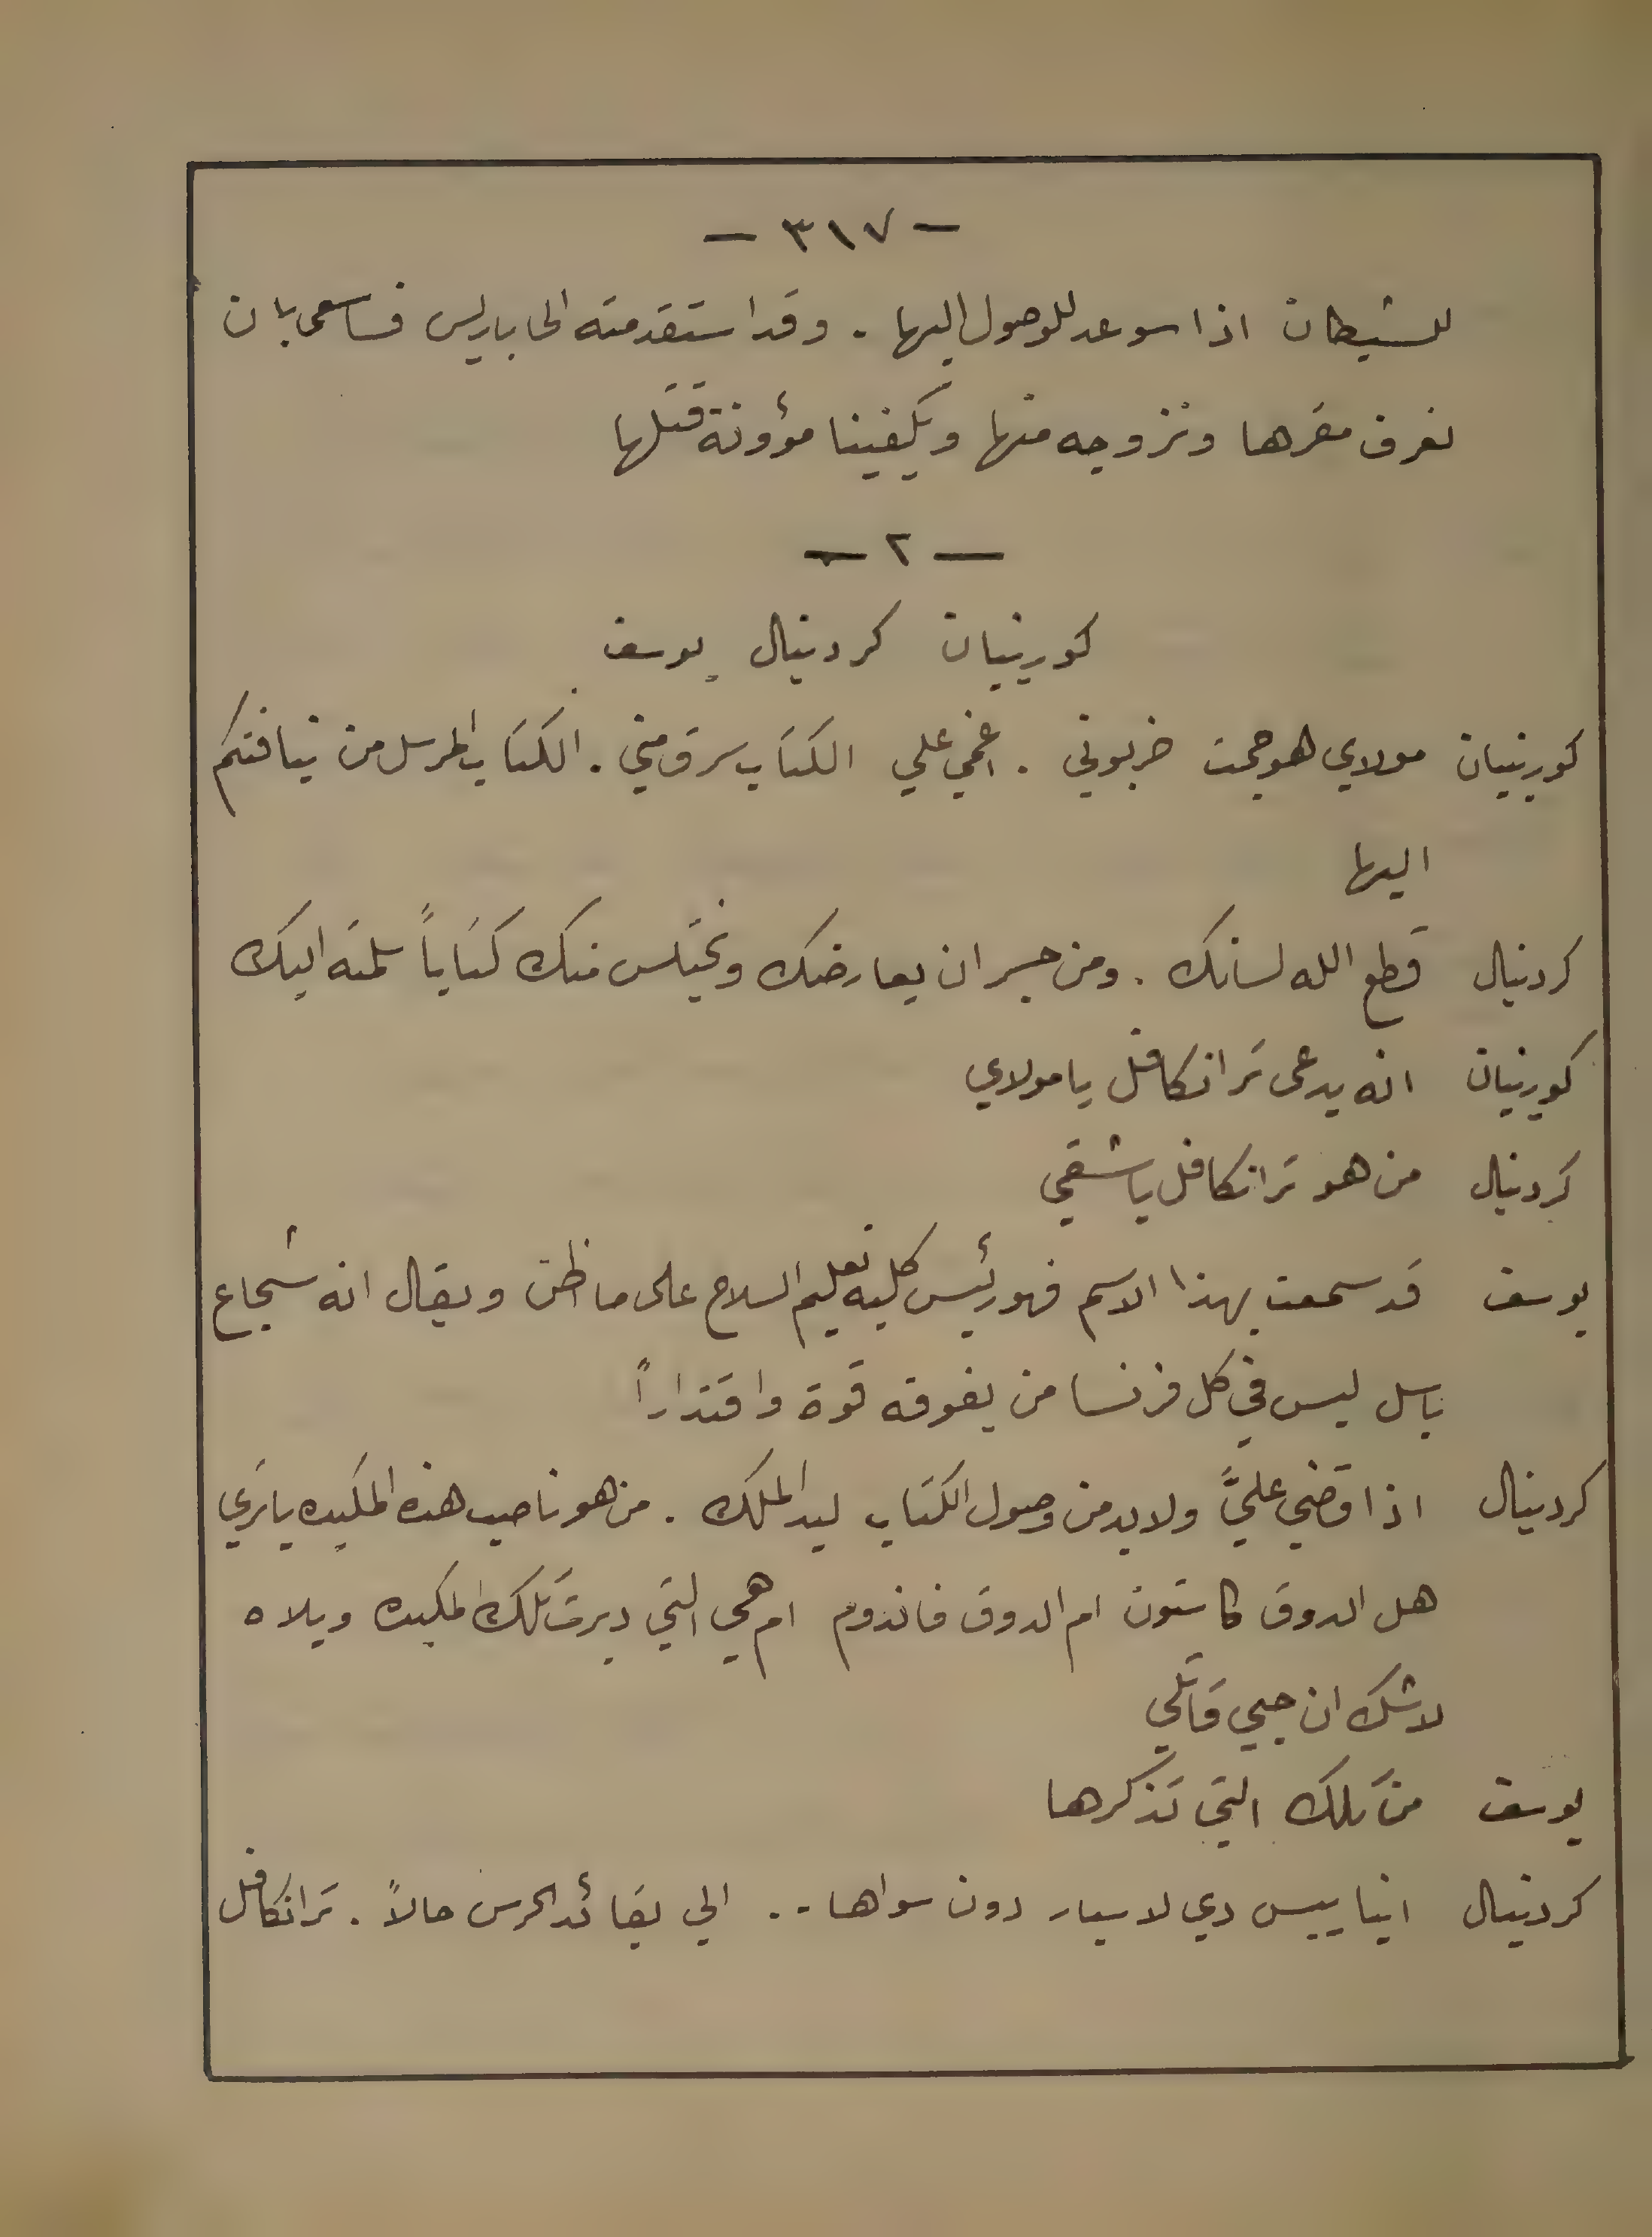 - ٣١٧ -
للشيطان اذا سوعد للوصول اليها . وقد استقدمته الى باريس فساسعى بان
نعرف مقرها ونزوجه منها ويكفينا مؤونة قتلها
- ٢ -
كورينيان كردينال يوسف
كورينيان مولاي هوجمت ضربوني . اغمي علي الكتاب سرق مني . الكتاب المرسل من نيافتكم
اليها
كردنيال قطع الله لسانك . ومن جسر ان يعارضك ويختلس منك كتاباً سلمته اليك
كورنيان انه يدعى ترانكافل يا مولاي
كردنيال من هو ترانكافل يا شقي
يوسف قد سمعت بهذا الاسم فهو رئيس كليه تعليم السلاح على ما اظن ويقال انه شجاع
باسل ليس في كل فرنسا من يفوقه قوة واقتداراً
كردينال اذا قضي عليَّ ولا بد من وصول الكتاب ليد الملك . من هو ناصب هذه المكيده يا ترى
هل الدوق كاستون ام الدوق فاندوم ام هي التي دبرت تلك المكيده ويلاه
لا شك ان حبي قاتلي
يوسف من تلك التي تذكرها
كردنيال انيا ييس دي لا سيار دون سواها .. الي بقائد الحرس حالاً . ترانكافل